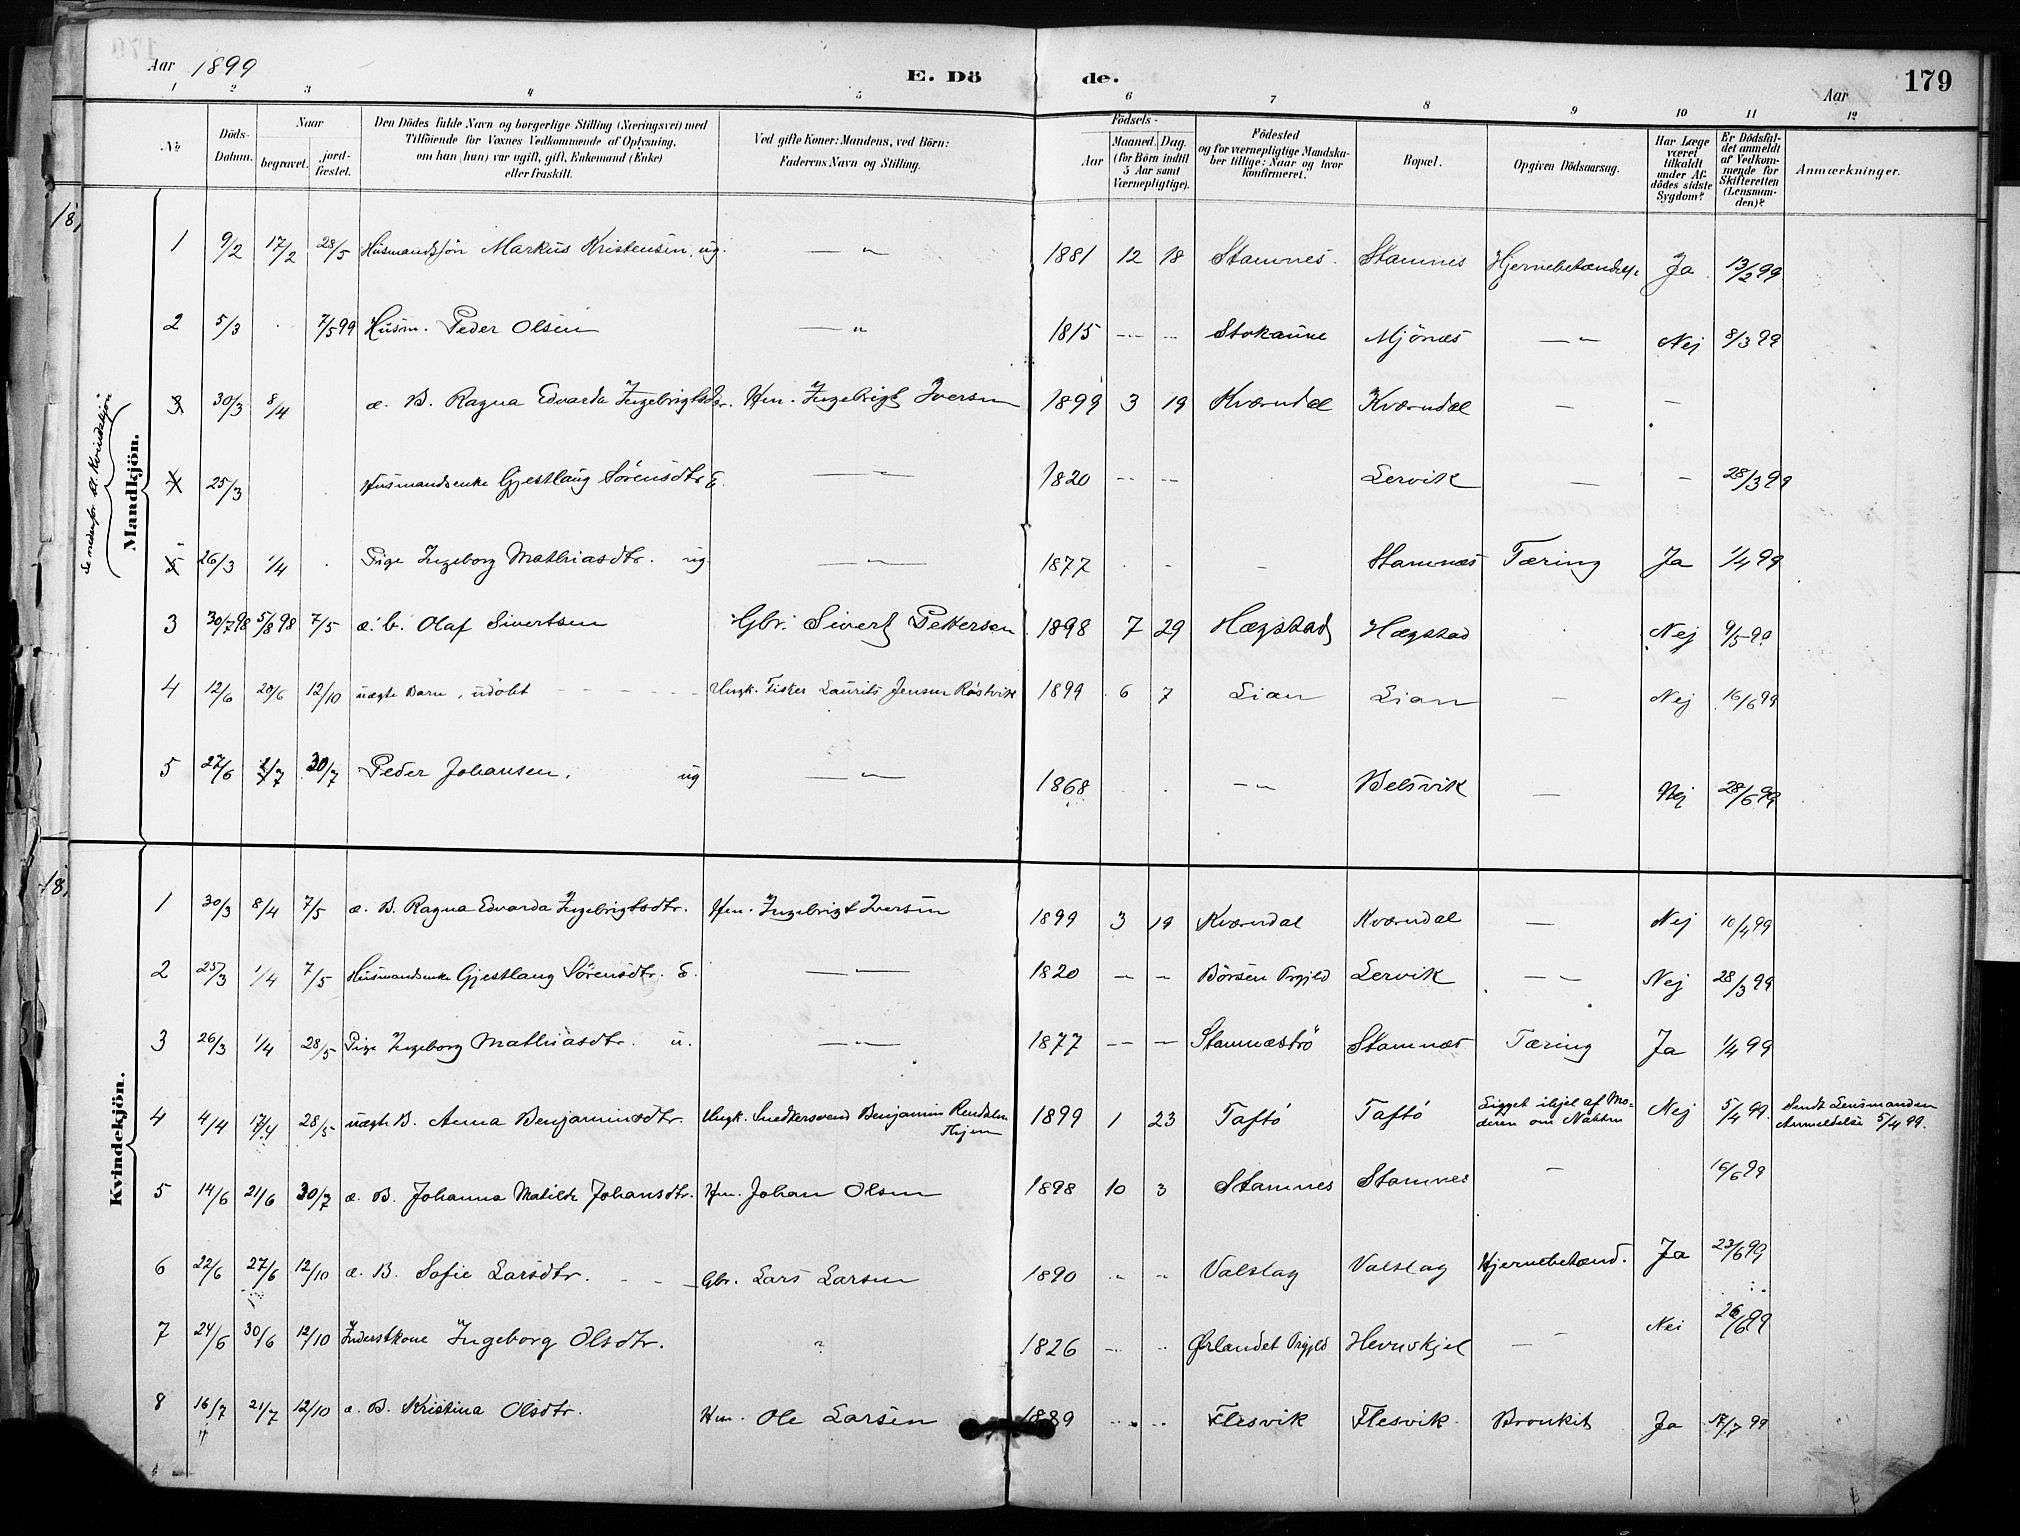 Aar 1899 E. Dö de. Aar 179
1 2 3 4 5 6 7 8 9 10 11 12
№ Döds-Datum. Naar begravet. jord-fæstet. Den Dödes fulde Navn og borgerlige Stilling (Næringsvei) med Tilföiende for Voxnes Vedkommende af Oplysning, om han (hun) var ugift, gift, Enkemand (Enke) eller fraskilt. Ved gifte Koner: Mandens, ved Börn: Faderens Navn og Stilling. Födsels- Aar Maaned. Dag. (for Börn indtil 5 Aar samt Værnepligtige). Födested og for værnepligtige Mandskaber tillige: Naar og hvor konfirmeret. Bopæl. Opgiven Dödsaarsag. Har Læge været tilkaldt under Afdödes sidste Sygdom? Er Dödsfaldet anmeldt af Vedkommende for Skifteretten (Lensmanden)? Anmærkninger.
18,
Mandkjön.
Se nedenfor til Kvindekjön
1 9/2 17/2 28/5 Husmandssön Markus Kristensen, ug. — " 1881 12 18 Stamnes. Stamnes Hjernebetændelse Ja 13/2 99
2 5/3 7/5 99 Husm. Peder Olsen — " 1815 --- --- Stokaune Mjönes — " — Nej 8/3 99
3 30/3 8/4 æ. B. Ragna Edvarda Ingebrigtsdtr. Hm. Ingebrigt Iversen 1899 3 19 Kværndal Kværndal — —
4 25/3 Husmandsenke Gjestlaug Sörensdtr E. — " — 1820 -- -- Lervik — — 28/3 99
5 26/3 1/4 Pige Ingeborg Mathiasdtr. ug. — " — 1877 Stamnæs Tæring Ja 1/4 99
3 30/7 98 5/8 98 7/5 æ. b. Olaf Sivertsen Gbr. Sivert Pettersen 1898 7 29 Hægstad Hægstad Nej 9/5 99
4 12/6 20/6 12/10 uægte Barn, udöbt Ungk. Fisker Laurits Jensen Röstvik 1899 6 7 Lian Lian — Nej 16/6 99
5 27/6 2/7 30/7 Peder Johansen. ug — " — 1868 — " Belsvik — Nej 28/6 99
18,
Kvindekjön.
1 30/3 8/4 7/5 æ. B. Ragna Edvarda Ingebrigtsdtr. Hm. Ingebrigt Iversen 1899 3 19 Kværndal Kværndal — Nej 10/4 99
2 25/3 1/4 7/5 Husmandsenke Gjestlaug Sörensdtr. E. — " — 1820 -- -- Börsen Prgjld Lervik — " — Nej 28/3 99
3 26/3 1/4 28/5 Pige Ingeborg Mathiasdtr. u. — " — 1877 -- -- Stamnæströ Stamnæs Tæring Ja 1/4 99
4 4/4 17/4 28/5 uægte B. Anna Benjaminsdtr. Ungk. Snedkersvend Benjamin 1899 1 23 Taftö Taftö Ligget ihjel af Moderen om Natten Nej 5/4 99 Sendt Lensmanden Anmeldelse 5/4 99.
5 14/6 21/6 30/7 æ. B. Johanna Matilde Johansdtr. Hm. Johan Olsen 1898 10 3 Stamnes Stamnes — 16/6 99
6 22/6 27/6 12/10 æ. B. Sofie Larsdtr. Gbr. Lars Larsen 1890 " " Valslag Valslag Hjernebetænd. Ja 23/6 99
7 24/6 30/6 12/10 Inderstkone Ingeborg Olsdtr. " 1826 -- " Ørlandet Prgjld Hevnskjel — Nei 26/6 99
8 16/7 21/7 12/10 æ. B. Kristina Olsdtr. Hm. Ole Larsen 1889 -- " Flesvik Flesvik Bronkit Ja 17/7 99